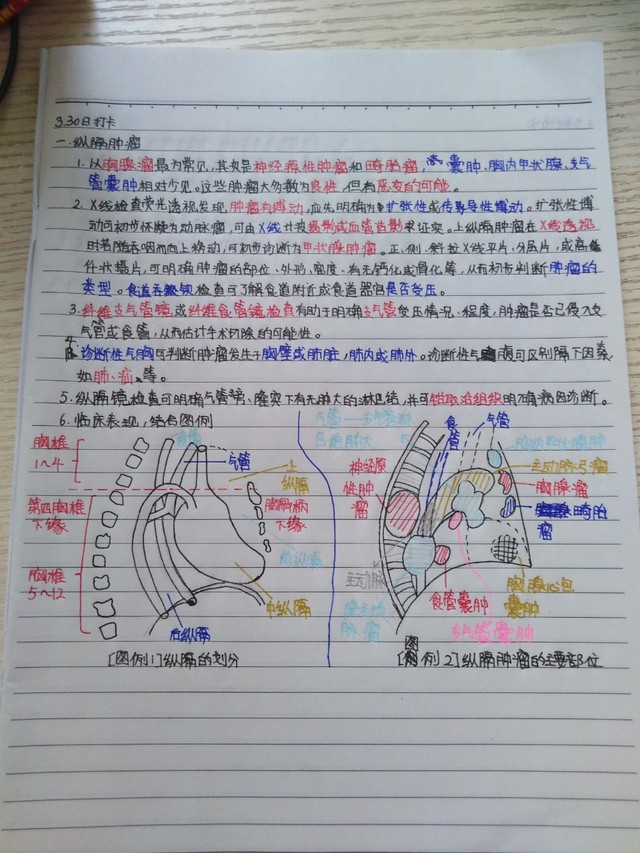 3.30日打卡
一.纵隔肿瘤
1.以胸腺瘤最为常见,其次是神经源性肿瘤和畸胎瘤,囊肿、胸内甲状腺、支气
管囊肿相对少见。这些肿瘤大多数为良性,但有恶变的可能。
2.X线检查荧光透视发现,肿瘤有搏动,应先明确为扩张性或传导性搏动。扩张性搏
动可初步怀疑为动脉瘤,可由X线计波摄影或血管造影来证实。上纵隔肿瘤在X线透视
时若随吞咽而向上移动,可初步诊断为甲状腺肿瘤。正、侧、斜位X线平片、分层片,或高
仟伏摄片,可明确肿瘤的部位、外形、密度、有无钙化或骨化等,从而初步判断肿瘤的
类型。食道吞钡检查可了解食道附近或食道器官是否受压。
3.纤维支气管镜或纤维食管镜检查有助于明确支气管受压情况、程度,肿瘤是否已侵入支
气管或食管,从而估计手术切除的可能性。
4.诊断性气胸可判断肿瘤发生于胸壁或肺脏,肺内或肺外。诊断性气腹可及别隔下因素,
如肺、疝、等。
5.纵隔镜检查可明确气管旁、隆突下有无肿大的淋巴结,并可钳取活组织明确病因诊断。
6.临床表现,结合图例
胸椎
1~4
第四胸椎
下缘
胸椎
5~12
食管
气管
上
纵隔
胸骨柄
下缘
前纵隔
中纵隔
后纵隔
[图例1]纵隔的划分
食
管
气管
神经原
性肿
瘤
主动脉
食管囊肿
支气管囊肿
胸内甲状腺肿
主动脉弓瘤
胸腺瘤
畸胎
瘤
胸腺心包
囊肿
[图例2]纵隔肿瘤的主要部位